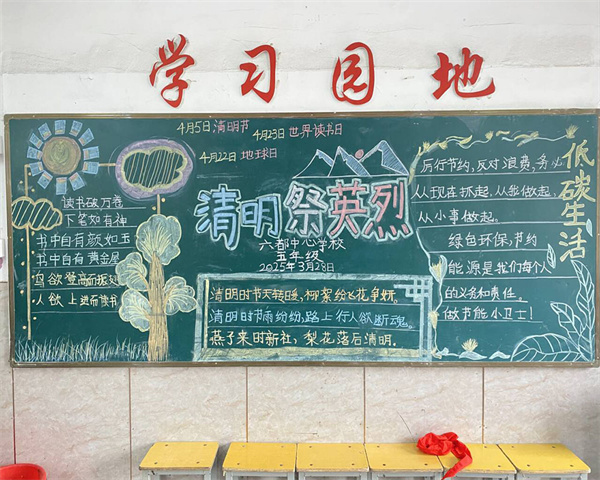 学习园地
4月5日清明节
4月23日世界读书日
4月22日地球日
清明祭英烈
六都中心学校
五年级
2025年3月28日
读书破万卷
下笔如有神
书中自有颜如玉
书中自有黄金屋
鸟欲登高而振翅
人欲上进而读书
清明时节天转暖,柳絮纷飞花争妍。
清明时节雨纷纷,路上行人欲断魂。
燕子来时新社,梨花落后清明。
低碳生活
厉行节约,反对浪费,务必
从现在抓起,从我做起,
从小事做起。
绿色环保,节约
能源是我们每个人
的义务和责任。
做节能小卫士!